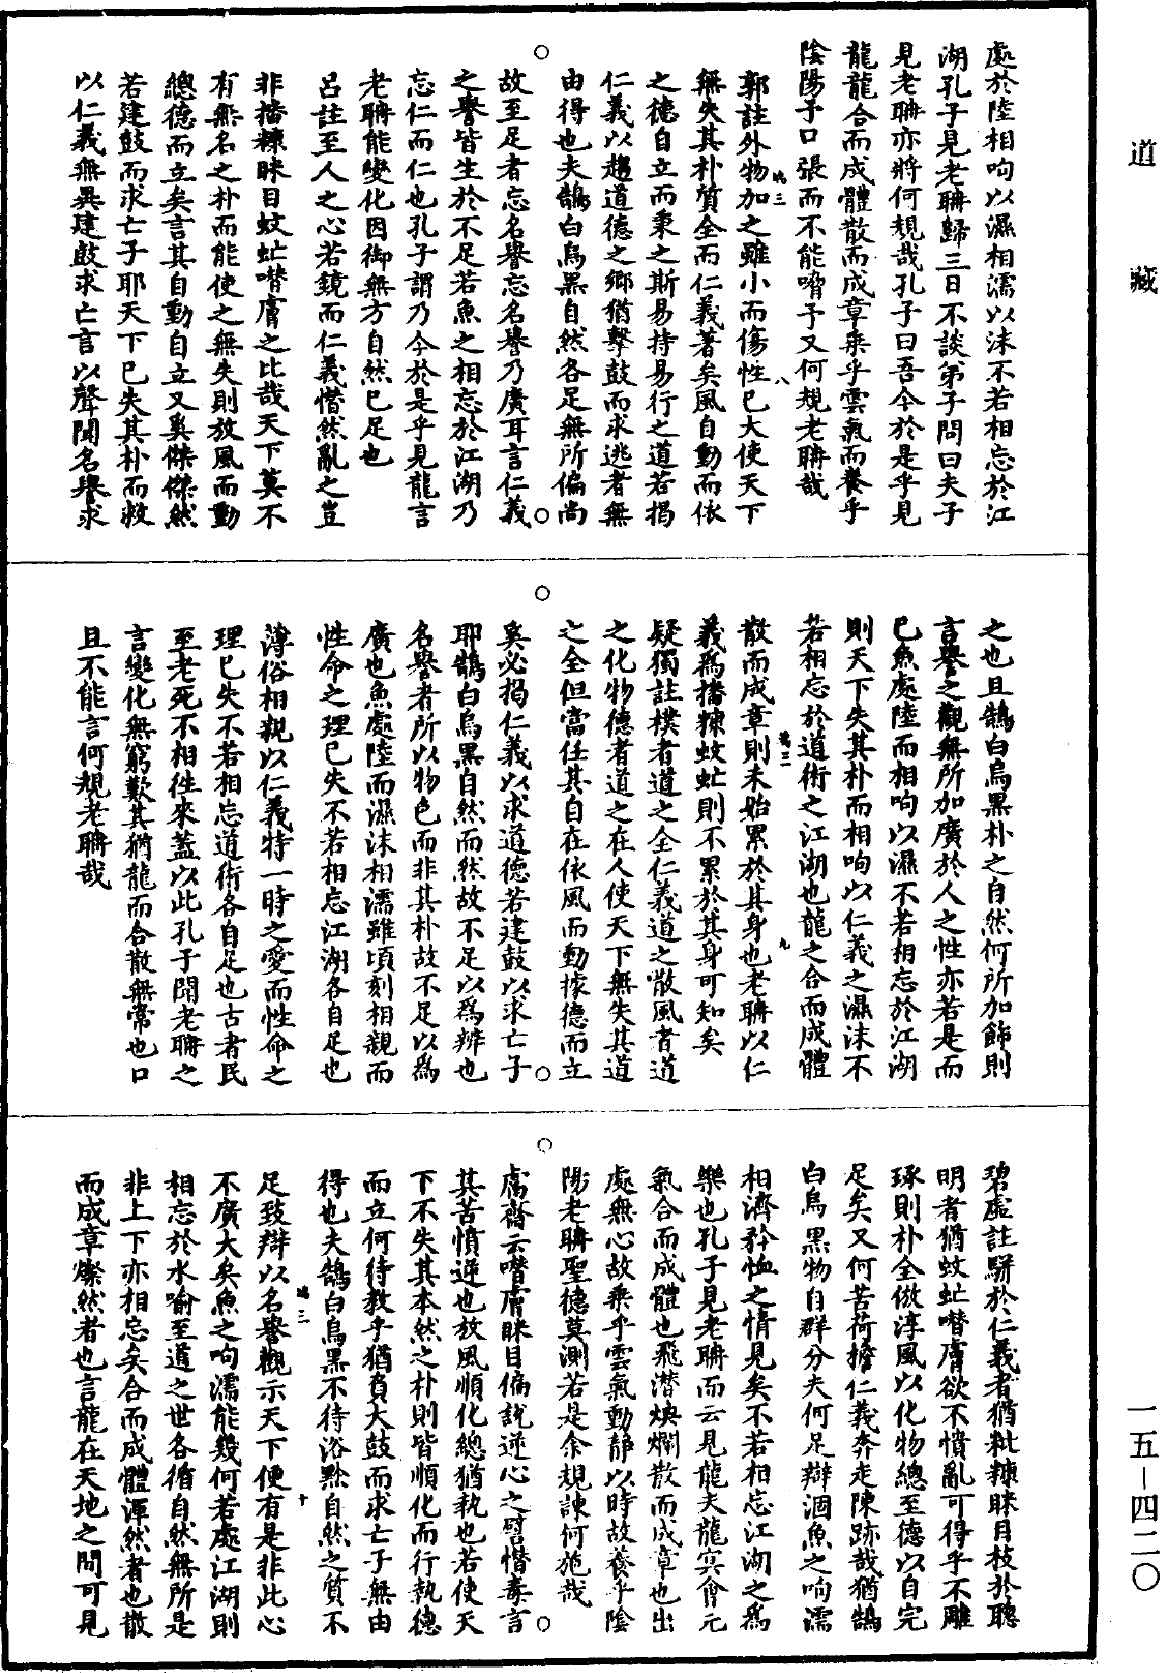 道藏
處於陸相呴以濕相濡以沫不若相忘於江
湖孔子見老聃歸三日不談弟子問曰夫子
見老聃亦將何規哉孔子曰吾今於是乎見
龍龍合而成體散而成章乘乎雲氣而養乎
陰陽予口張而不能嗋予又何規老聃哉
郭註外物加之雖小而傷性已大使天下
無失其朴質全而仁義著矣風自動而依
之德自立而秉之斯易持易行之道若揭
仁義以趨道德之鄉猶擊鼓而求逃者無
由得也夫鵠白烏黑自然各足無所偏尚
故至足者忘名譽忘名譽乃廣耳言仁義
之譽皆生於不足若魚之相忘於江湖乃
忘仁而仁也孔子謂乃今於是乎見龍言
老聃能變化因御無方自然已足也
呂註至人之心若鏡而仁義憯然亂之豈
非播糠眯目蚊虻噆膚之比哉天下莫不
有無名之朴而能使之無失則放風而動
總德而立矣言其自動自立又奚傑傑然
若建鼓而求亡子耶天下已失其朴而救
以仁義無異建鼓求亡言以聲聞名譽求
之也且鵠白烏黑朴之自然何所加飾則
言譽之觀無所加廣於人之性亦若是而
已魚處陸而相呴以濕不若相忘於江湖
則天下失其朴而相呴以仁義之濕沫不
若相忘於道術之江湖也龍之合而成體
散而成章則未始累於其身也老聃以仁
義爲播糠蚊虻則不累於其身可知矣
疑獨註樸者道之全仁義道之散風者道
之化物德者道之在人使天下無失其道
之全但當任其自在依風而動據德而立
奚必揭仁義以求道德若建鼓以求亡子
耶鵠白烏黑自然而然故不足以爲辨也
名譽者所以物色而非其朴故不足以爲
廣也魚處陸而濕沫相濡雖頃刻相親而
性命之理已失不若相忘江湖各自足也
薄俗相親以仁義特一時之愛而性命之
理已失不若相忘道術各自足也古者民
至老死不相徃來蓋以此孔子聞老聃之
言變化無窮歎其猶龍而合散無常也口
且不能言何規老聃哉
碧虛註駢於仁義者猶粃糠眯目枝於聰
明者猶蚊虻噆膚欲不憒亂可得乎不雕
琢則朴全倣淳風以化物總至德以自完
足矣又何苦荷擔仁義奔走陳跡哉猶鵠
白烏黑物自群分夫何足辯涸魚之呴濡
相濟矜恤之情見矣不若相忘江湖之爲
樂也孔子見老聃而云見龍夫龍㝠會元
氣合而成體也飛潜焕爛散而成章也出
處無心故乘乎雲氣動靜以時故養乎陰
陽老聃聖德莫測若是余規諫何施哉
鬳齋云噆膚眯目偏說逆心之譬憯毒言
其苦憤逆也放風順化總猶執也若使天
下不失其本然之朴則皆順化而行執德
而立何待教乎猶負大鼓而求亡子無由
得也夫鵠白烏黑不待浴黔自然之質不
足致辯以名譽觀示天下便有是非此心
不廣大矣魚之呴濡能幾何若處江湖則
相忘於水喻至道之世各循自然無所是
非上下亦相忘矣合而成體渾然者也散
而成章燦然者也言龍在天地之間可見
一五—四二〇